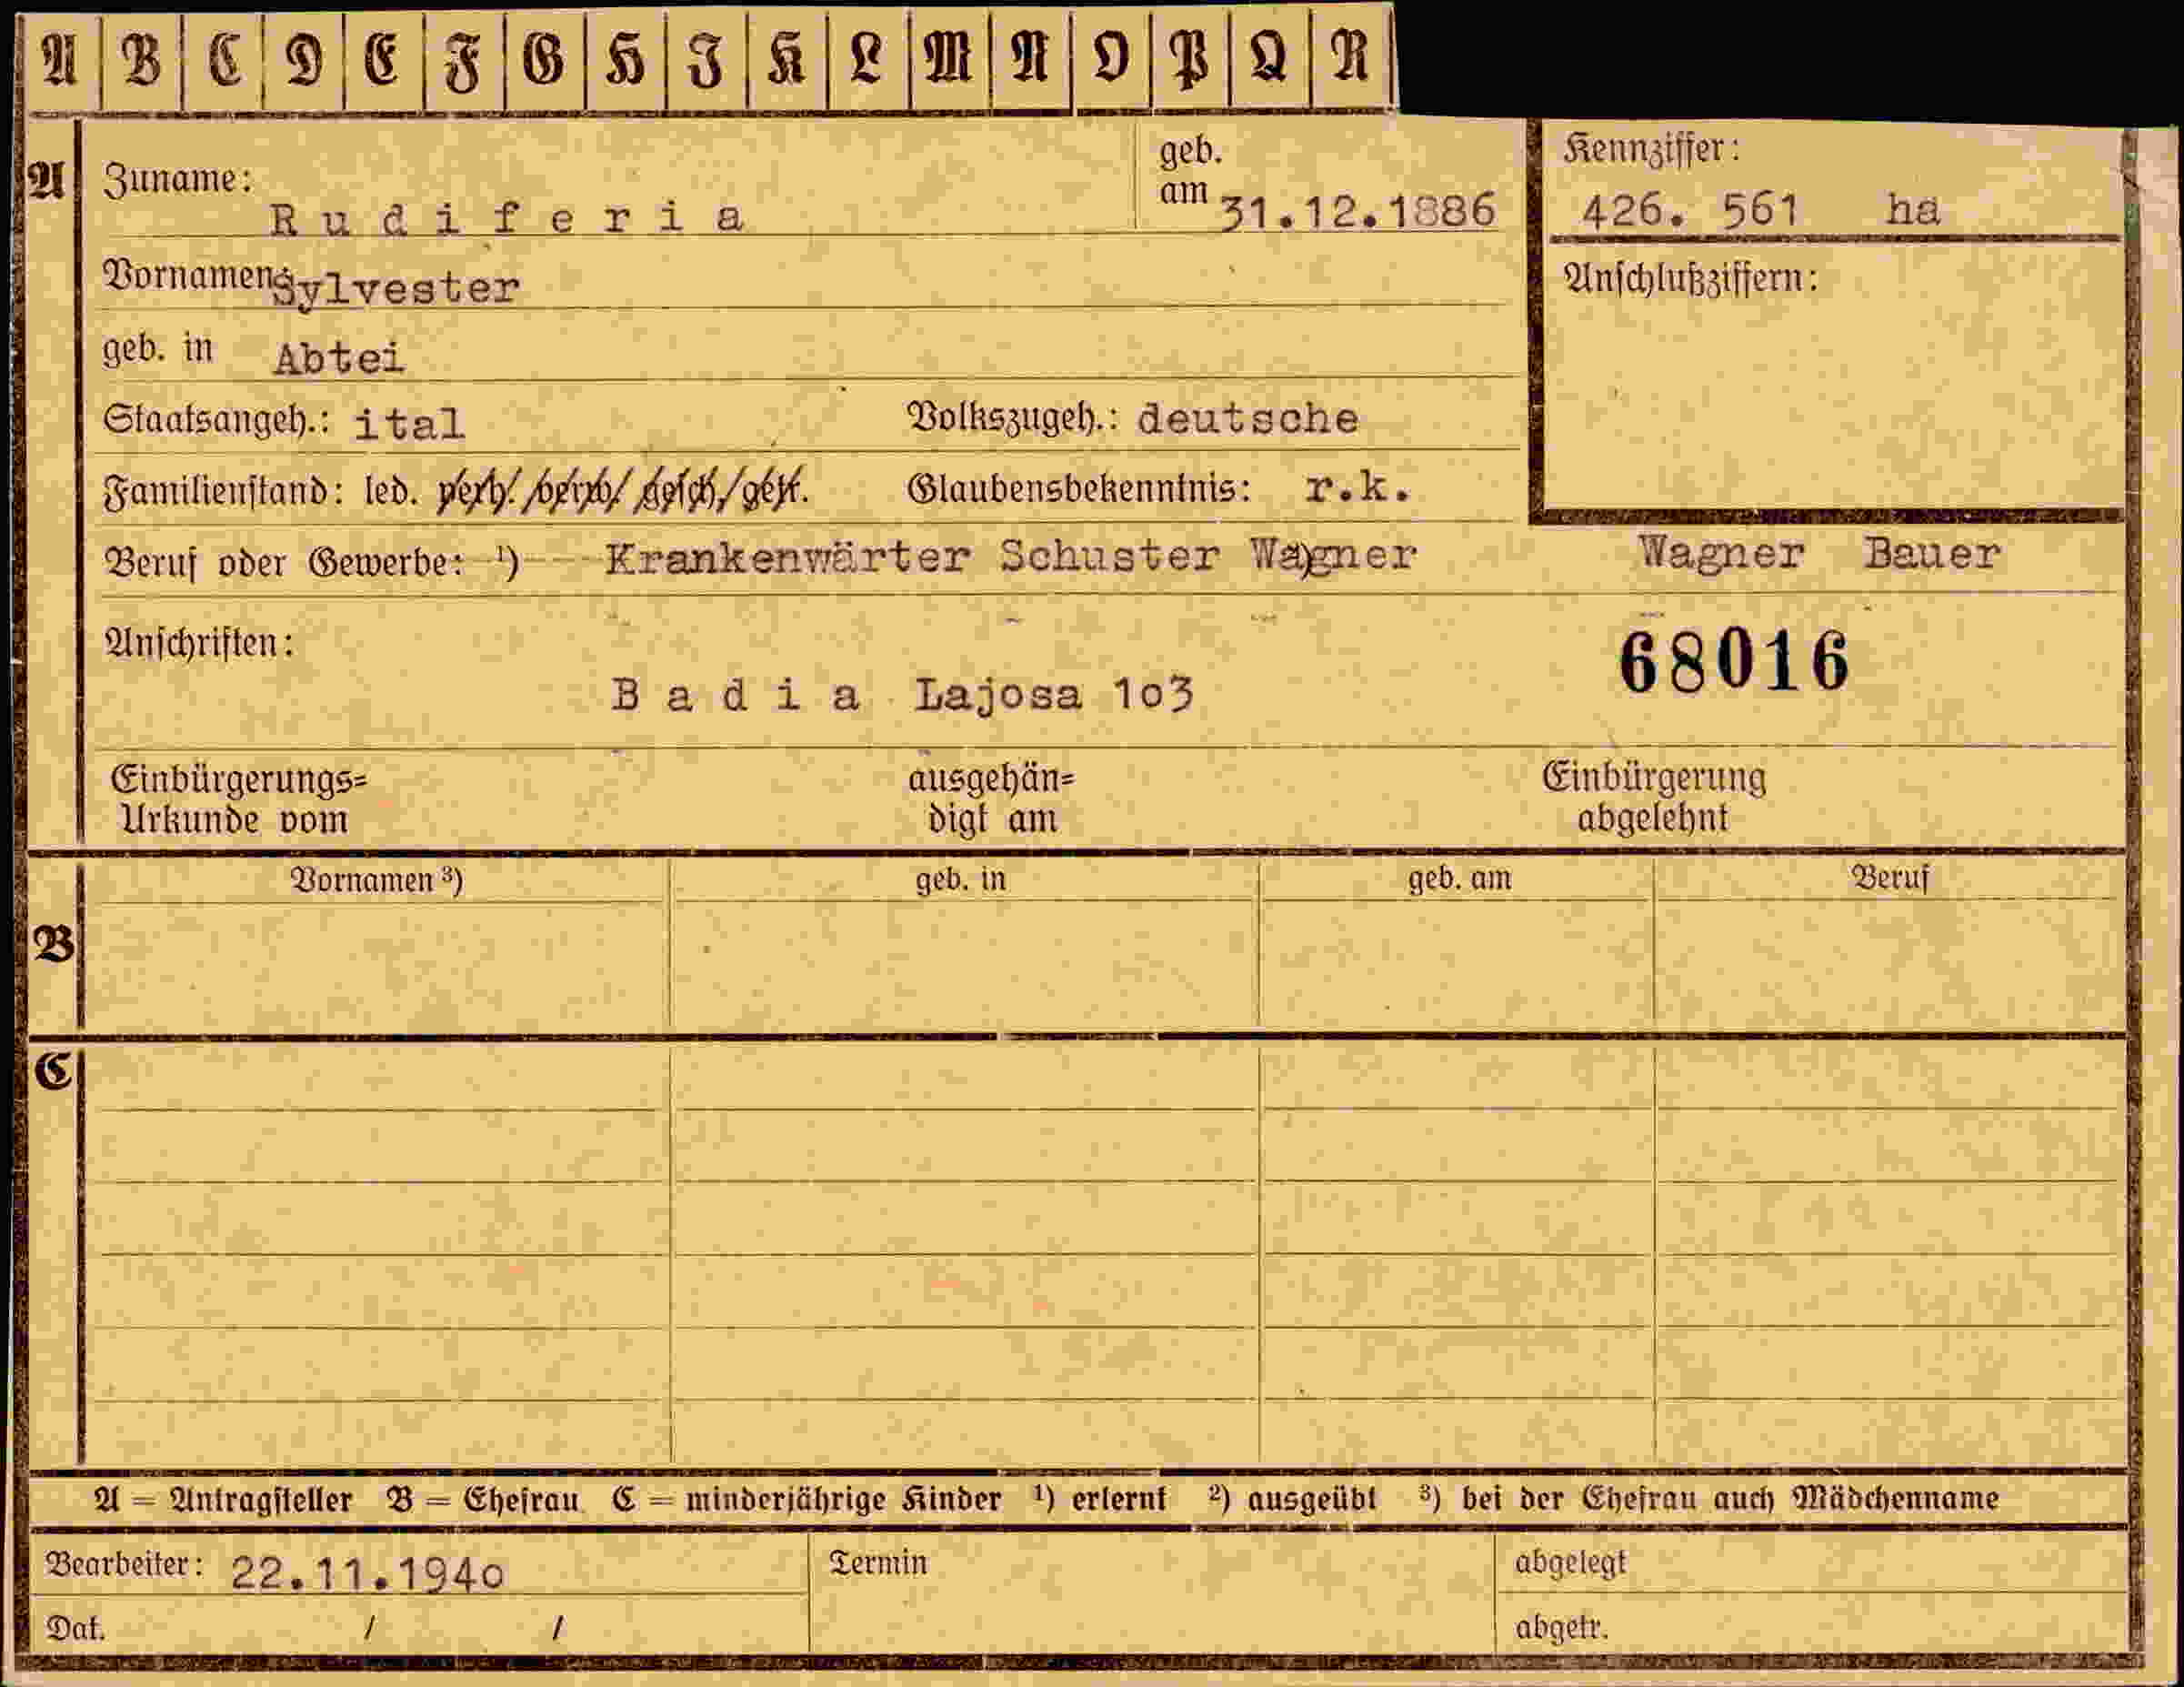 A B C D E F G H I K L M N O P Q R
A
Zuname: Rudiferia
geb. am 31.12.1886
Kennziffer:
426. 561 ha
Vornamen: Sylvester
Anschlußziffern:
geb. in Abtei
Staatsangeh.: ital Volkszugeh.: deutsche
Familienstand: led. verh. / verw. / gesch. / getr. Glaubensbekenntnis: r.k.
Beruf oder Gewerbe: ¹) Krankenwärter Schuster Wagner Wagner Bauer
Anschriften:
68016
Badia Lajosa 1o3
Einbürgerungs= Urkunde vom
ausgehän= digt am
Einbürgerung abgelehnt
B
Vornamen ³) geb. in geb. am Beruf
C
A = Antragsteller B = Ehefrau C = minderjährige Kinder ¹) erlernt ²) ausgeübt ³) bei der Ehefrau auch Mädchenname
Bearbeiter: 22.11.194o Termin abgelegt
Dat. / / abgetr.